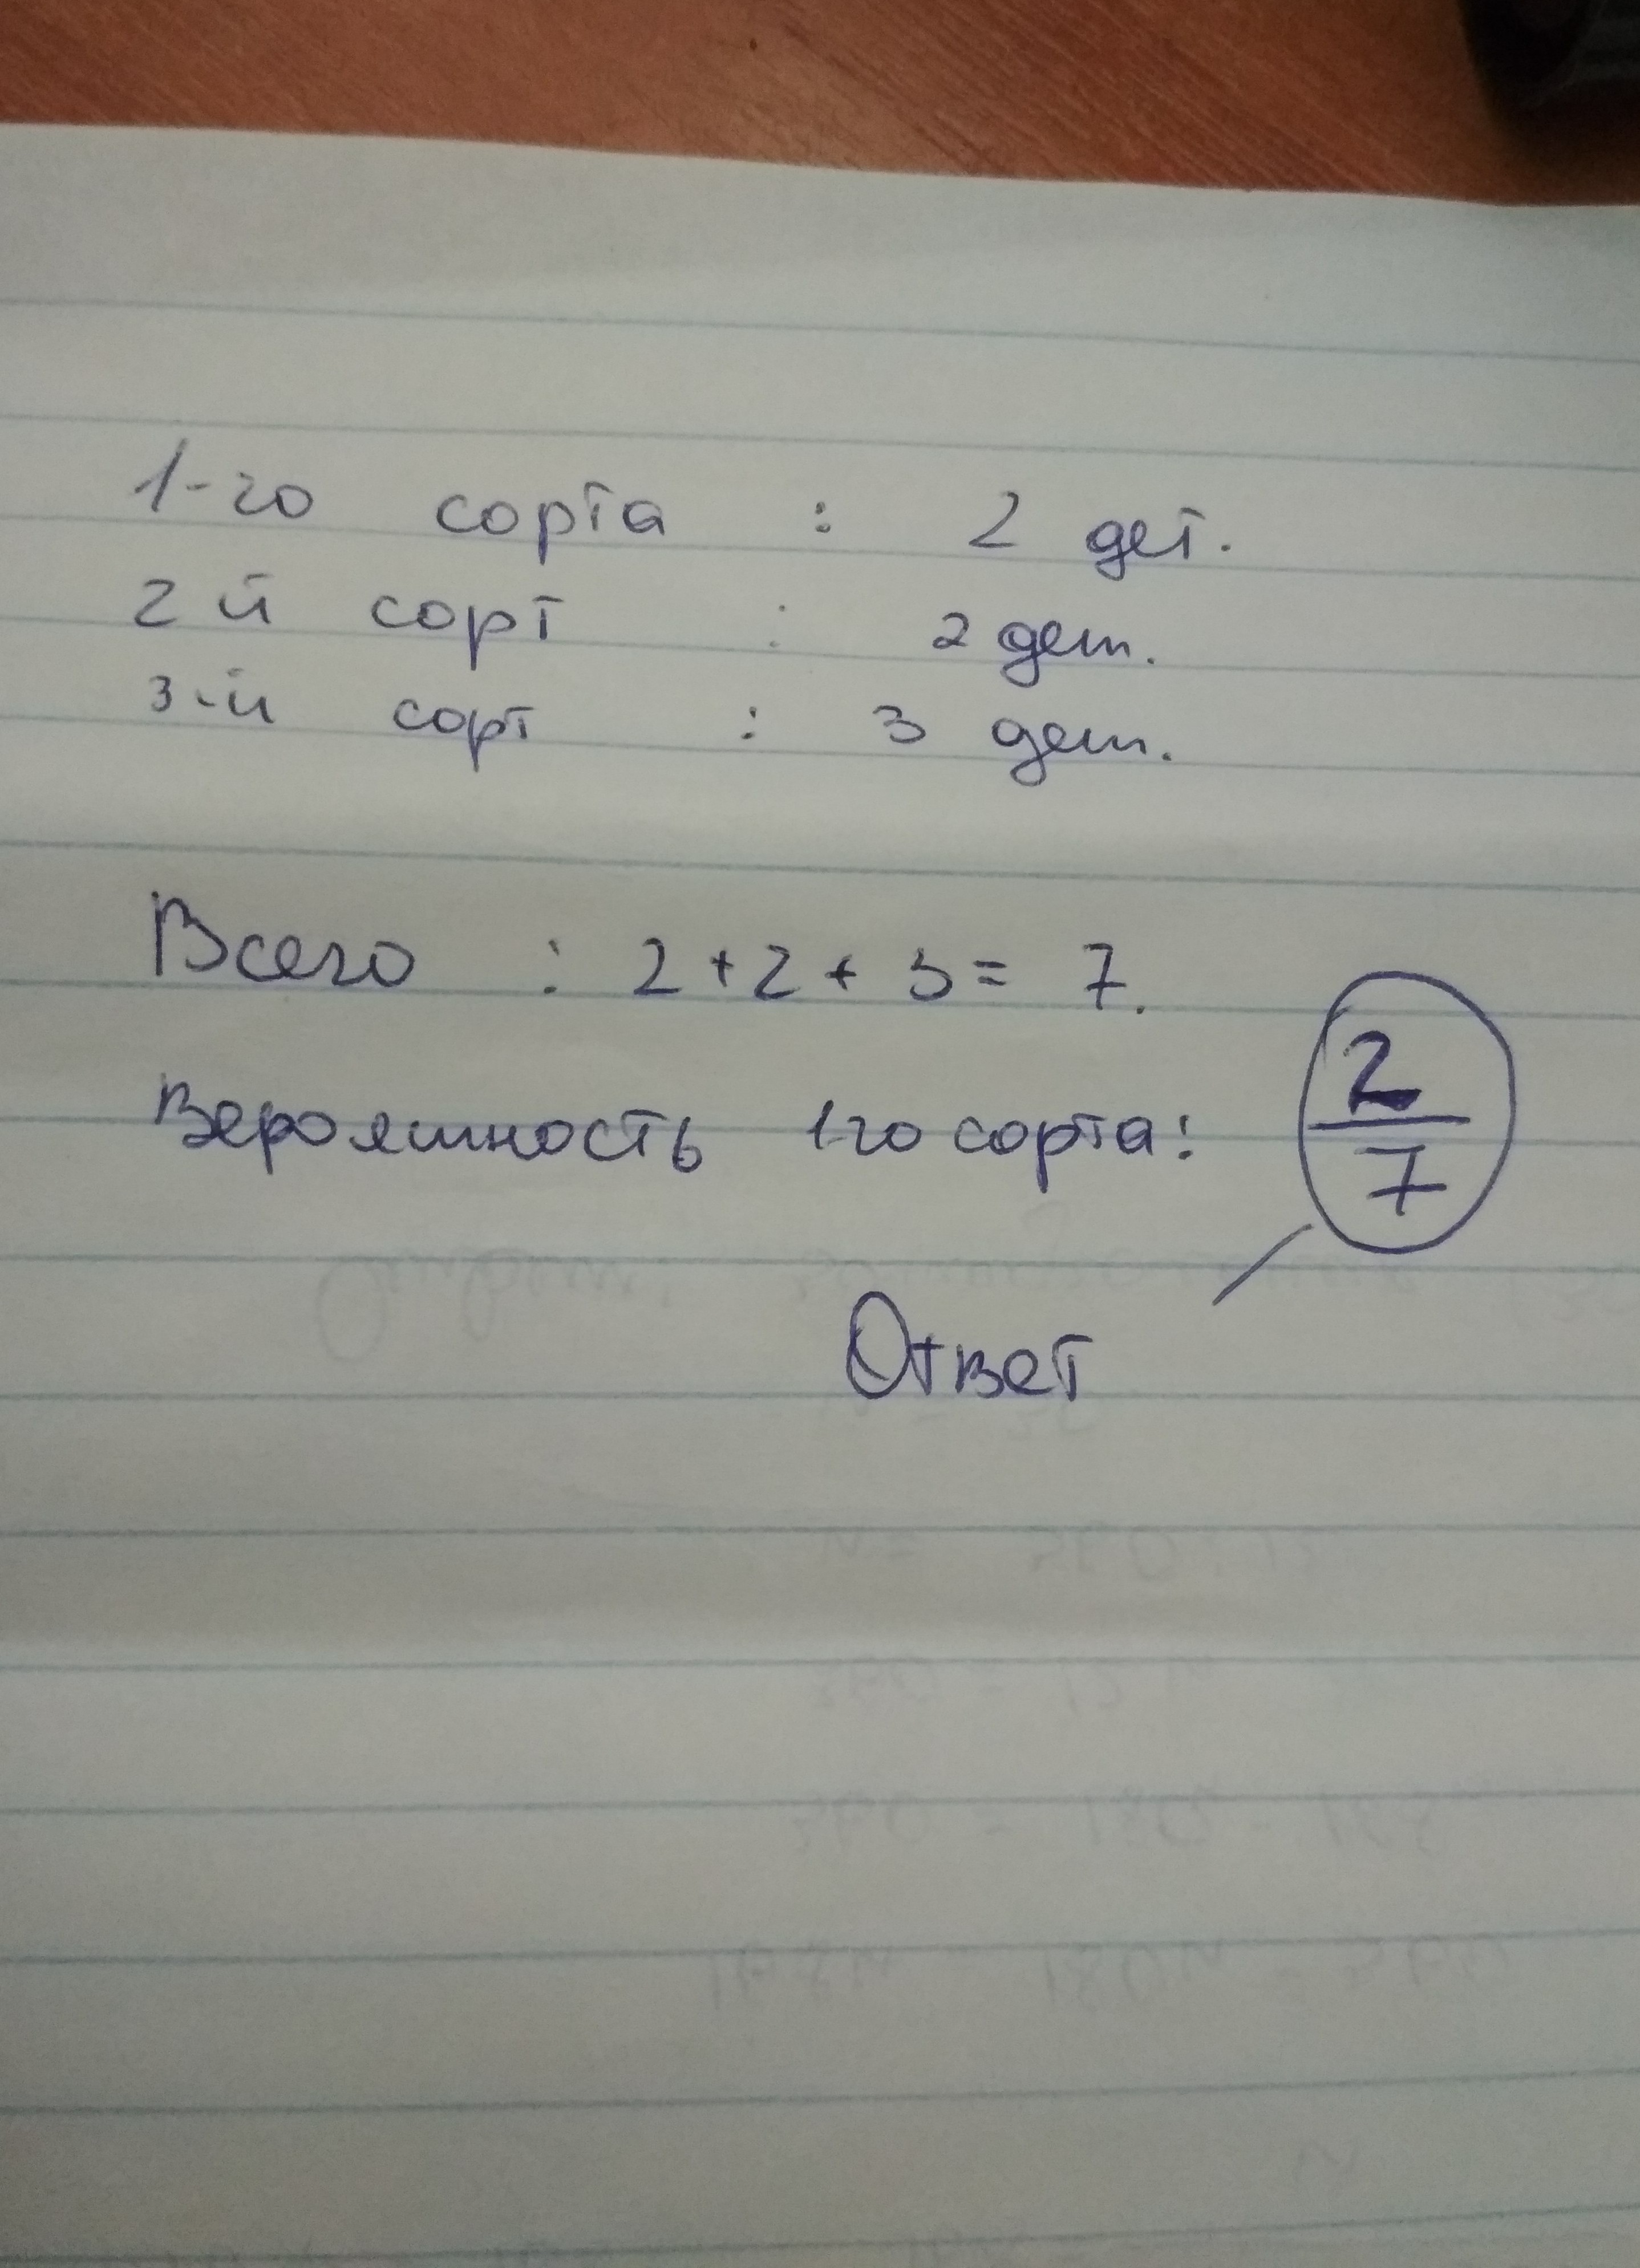 1-го сорта : 2 дет.
2й сорт : 2 дет.
3-й сорт : 3 дет.
Всего : 2+2+3= 7.
Вероятность 1-го сорта: 2/7
Ответ